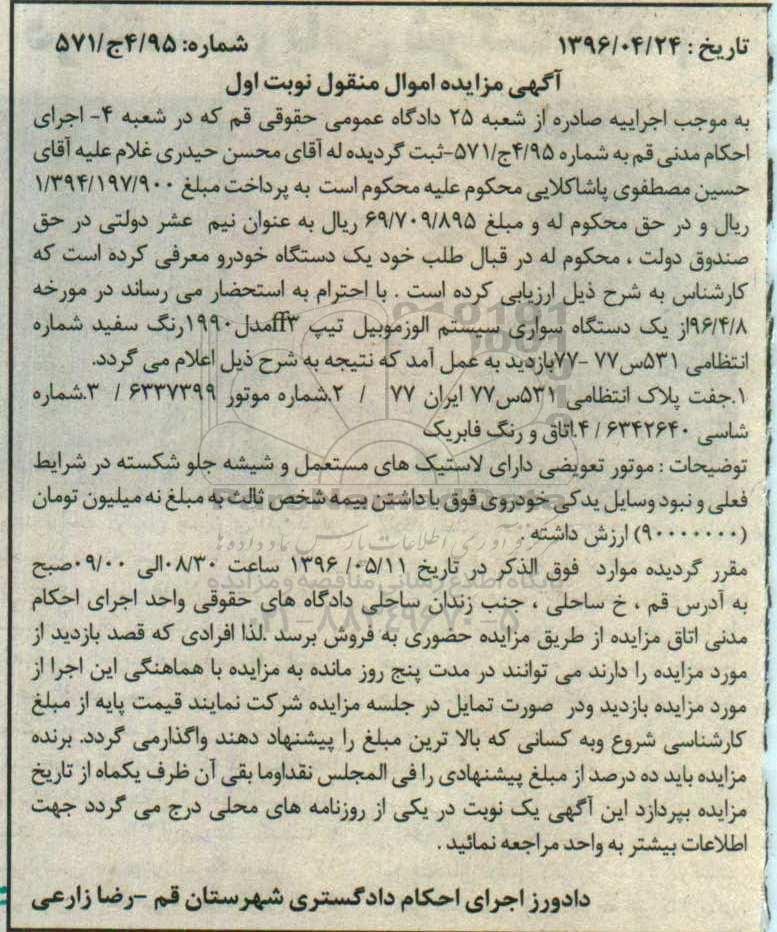 تاریخ : ۱۳۹۶/۰۴/۲۴
شماره: ۴/۹۵ج/۵۷۱
آگهی مزایده اموال منقول نوبت اول
به موجب اجراییه صادره از شعبه ۲۵ دادگاه عمومی حقوقی قم که در شعبه ۴- اجرای
احکام مدنی قم به شماره ۴/۹۵ج/۵۷۱-ثبت گردیده له آقای محسن حیدری غلام علیه آقای
حسین مصطفوی پاشاکلایی محکوم علیه محکوم است به پرداخت مبلغ ۱/۳۹۴/۱۹۷/۹۰۰
ریال و در حق محکوم له و مبلغ ۶۹/۷۰۹/۸۹۵ ریال به عنوان نیم عشر دولتی در حق
صندوق دولت ، محکوم له در قبال طلب خود یک دستگاه خودرو معرفی کرده است که
کارشناس به شرح ذیل ارزیابی کرده است . با احترام به استحضار می رساند در مورخه
۹۶/۴/۸از یک دستگاه سواری سیستم الوزموبیل تیپ ff۳مدل۱۹۹۰رنگ سفید شماره
انتظامی ۵۳۱س۷۷ -۷۷بازدید به عمل آمد که نتیجه به شرح ذیل اعلام می گردد.
۱.جفت پلاک انتظامی ۵۳۱س۷۷ ایران ۷۷ / ۲.شماره موتور ۶۳۳۷۳۹۹ / ۳.شماره
شاسی ۶۳۴۲۶۴۰ / ۴.اتاق و رنگ فابریک
توضیحات : موتور تعویضی دارای لاستیک های مستعمل و شیشه جلو شکسته در شرایط
فعلی و نبود وسایل یدکی خودروی فوق با داشتن بیمه شخص ثالث به مبلغ نه میلیون تومان
(۹۰۰۰۰۰۰۰) ارزش داشته .
مقرر گردیده موارد فوق الذکر در تاریخ ۰۵/۱۱/ ۱۳۹۶ ساعت ۰۸/۳۰الی ۰۹/۰۰صبح
به آدرس قم ، خ ساحلی ، جنب زندان ساحلی دادگاه های حقوقی واحد اجرای احکام
مدنی اتاق مزایده از طریق مزایده حضوری به فروش برسد .لذا افرادی که قصد بازدید از
مورد مزایده را دارند می توانند در مدت پنج روز مانده به مزایده با هماهنگی این اجرا از
مورد مزایده بازدید ودر صورت تمایل در جلسه مزایده شرکت نمایند قیمت پایه از مبلغ
کارشناسی شروع وبه کسانی که بالا ترین مبلغ را پیشنهاد دهند واگذارمی گردد. برنده
مزایده باید ده درصد از مبلغ پیشنهادی را فی المجلس نقداوما بقی آن ظرف یکماه از تاریخ
مزایده بپردازد این آگهی یک نوبت در یکی از روزنامه های محلی درج می گردد جهت
اطلاعات بیشتر به واحد مراجعه نمائید .
دادورز اجرای احکام دادگستری شهرستان قم -رضا زارعی